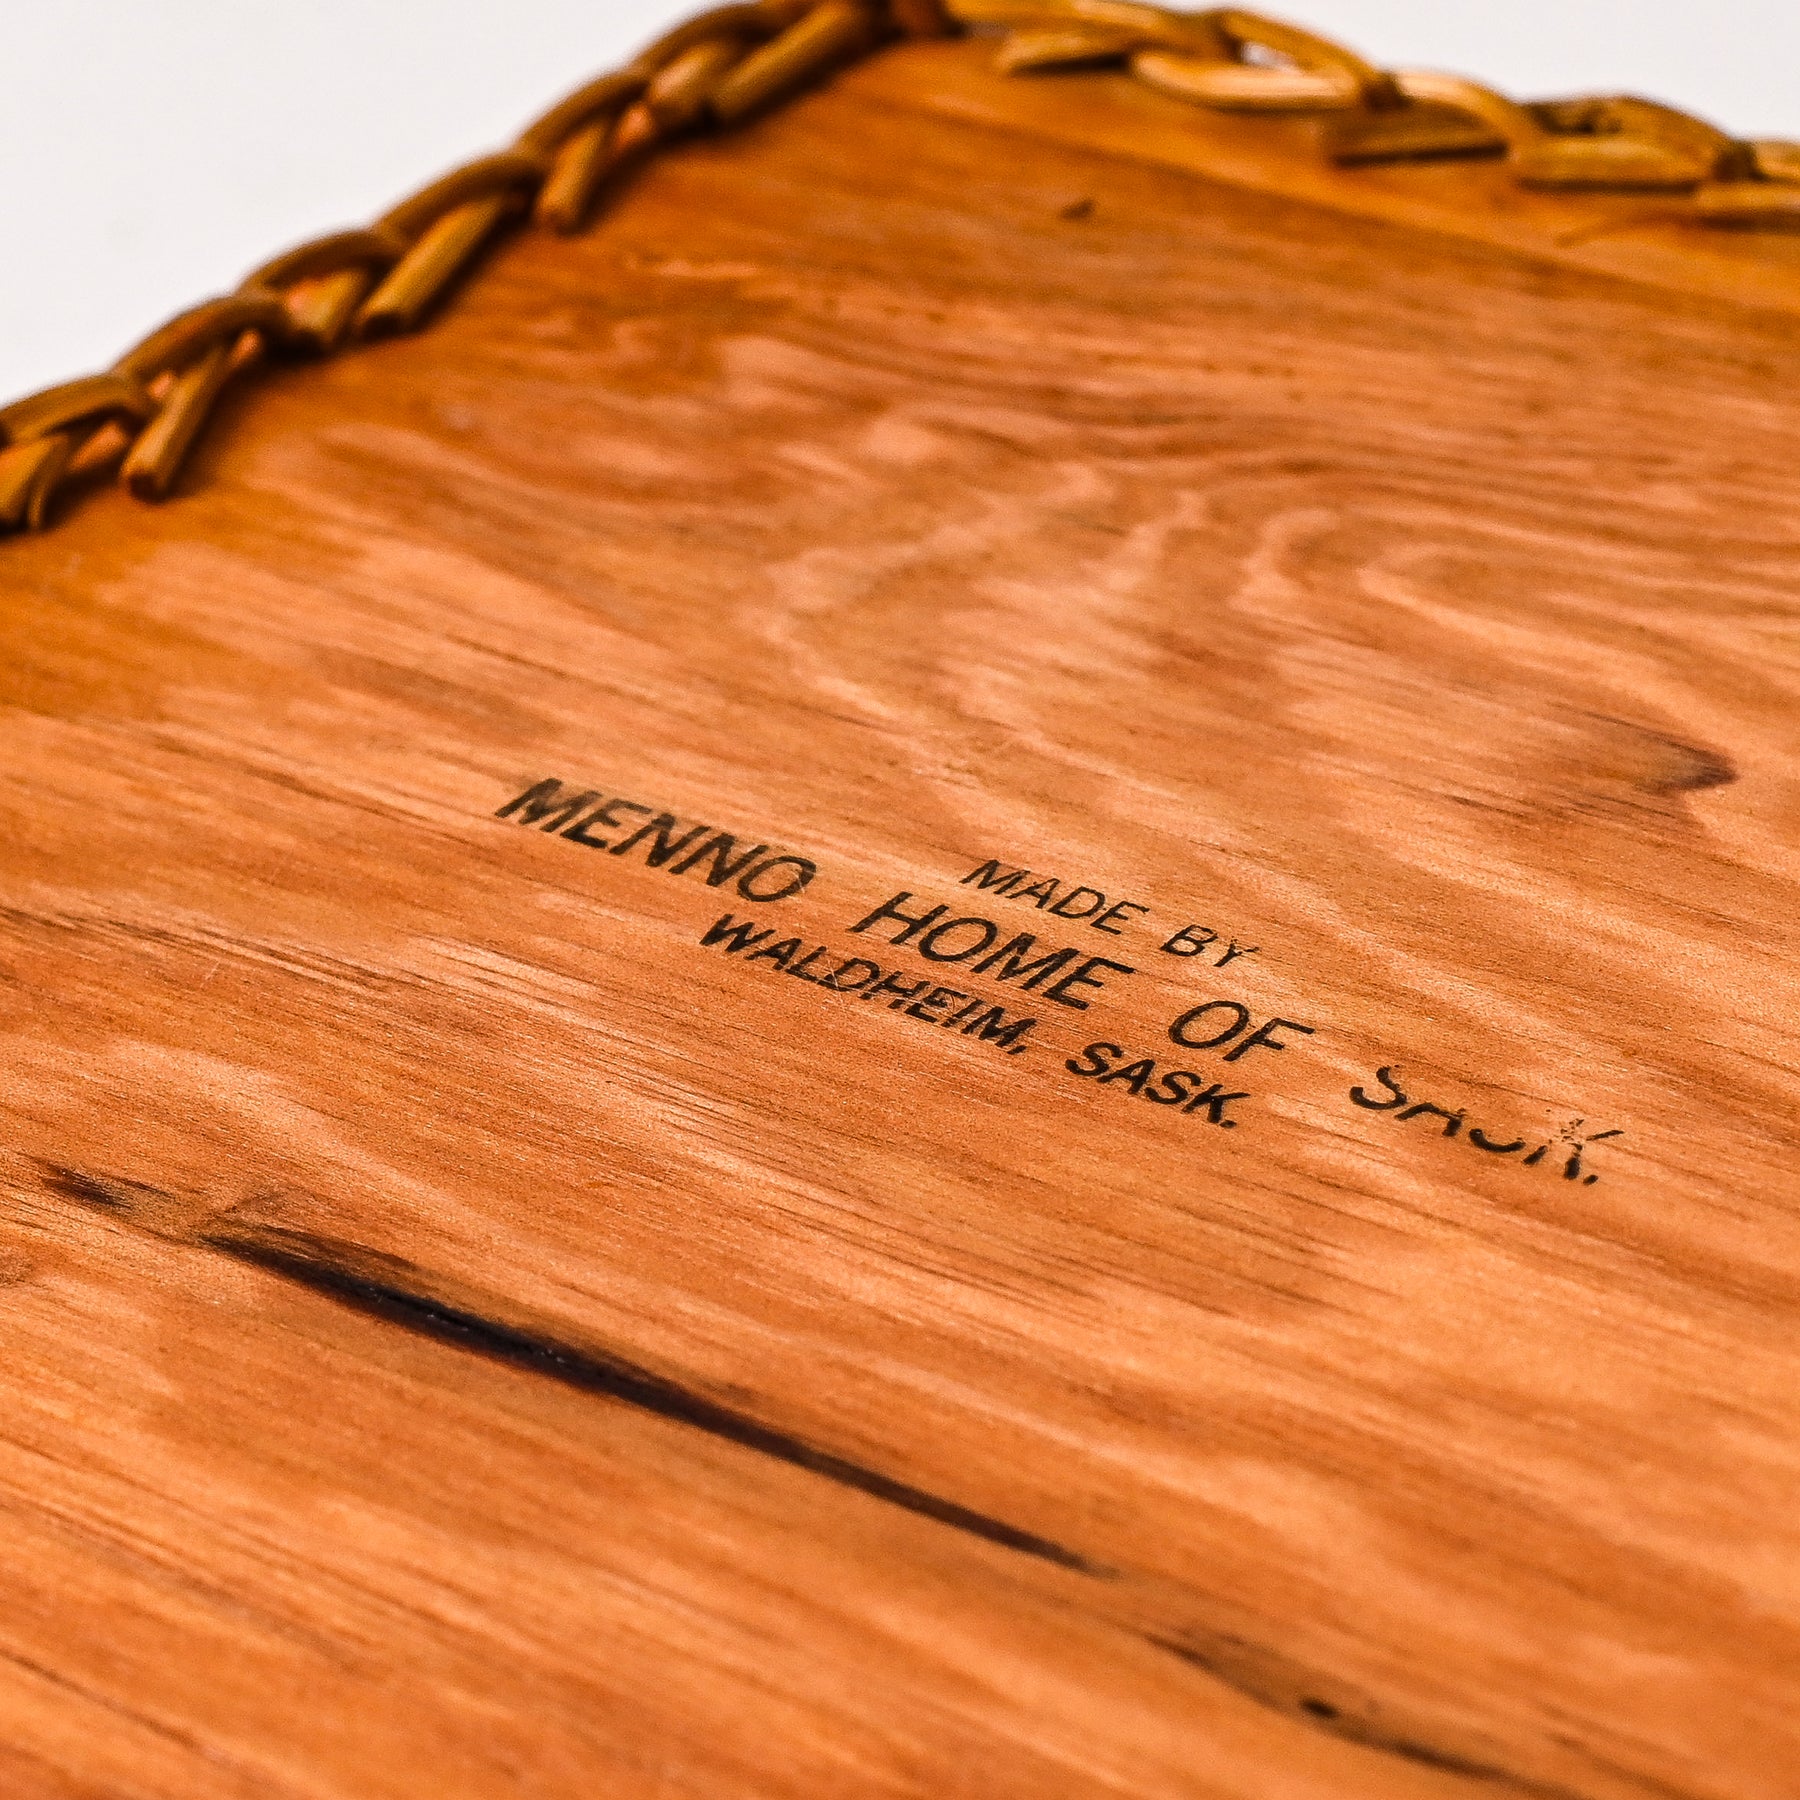 MADE BY
MENNO HOME OF SASK.
WALDHEIM, SASK.